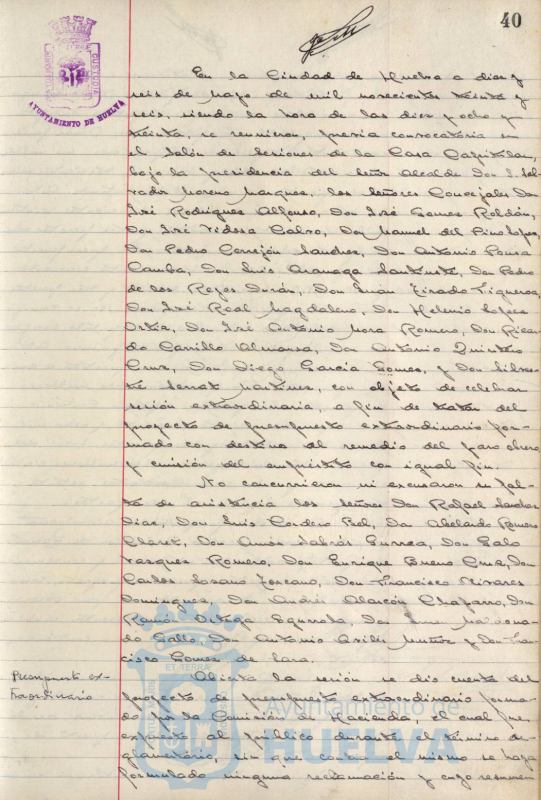 40
AYUNTAMIENTO DE HUELVA
En la Ciudad de Huelva a diez y
seis de mayo de mil novecientos treinta y
seis, siendo la hora de las diez y ocho y
treinta, se reunieron, previa convocatoria en
el Salón de Sesiones de la Casa Capitular,
bajo la presidencia del Señor Alcalde Don Sal-
vador Moreno Marquez, los señores Concejales Don
José Rodriguez Alfonso, Don José Gomez Roldán,
Don José Vidosa Calvo, Don Manuel del Pino Lopez,
Don Pedro Cerrejón Sanchez, Don Antonio Pousa
Camba, Don Luis Aranaga Santurte, Don Pedro
de los Reyes Durán, Don Juan Tirado Figueroa,
Don José Real Magdaleno, Don Helenio Lopez
Ortiz, Don José Antonio Mora Romero, Don Ricar-
do Carrillo Almansa, Don Antonio Quintero
Cruz, Don Diego Garcia Gomez, y Don Silves-
tre Serrat Martinez, con objeto de celebrar
sesión extraordinaria, a fin de tratar del
proyecto de presupuesto extraordinario for-
mado con destino al remedio del paro obrero
y emisión del empréstito con igual fin.
No concurrieron ni excusaron su fal-
ta de asistencia los señores Don Rafael Sanchez
Diaz, Don Luis Cordero Bel, Don Abelardo Romero
Claret, Don Amós Sabrás Gurrea, Don Galo
Vazquez Romero, Don Enrique Bueno Cruz, Don
Carlos Lozano Toscano, Don Francisco Nivares
Dominguez, Don Andrés Alarcón Chaparro, Don
Ramón Ortega Don Maldona-
do Gallo, Don Antonio Muñoz y Don Fran-
cisco Gomez de Lara.
Presupuesto ex-
traordinario
Abierta la sesión se dió cuenta del
proyecto de presupuesto extraordinario forma-
do por la Comisión de Hacienda, el cual fue
expuesto al público durante el término re-
glamentario, sin que contra el mismo se haya
formulado ninguna reclamación y cuyo resumen
Ayuntamiento de
HUELVA